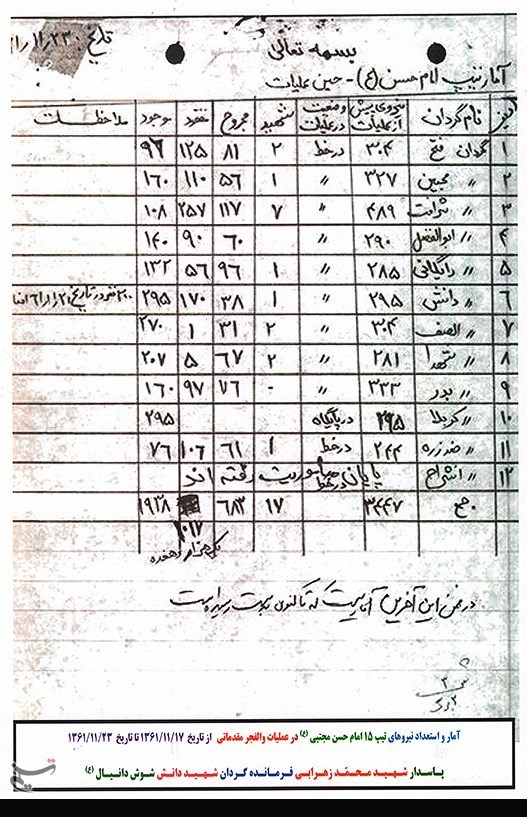 بسمه تعالی
تاریخ: ۲۳/۱۱/
آمار تیپ امام حسن (ع) - حین عملیات
ردیف نام گردان نیروی پیش از عملیات وضعیت در عملیات شهید مجروح مفقود موجود ملاحظات
۱ گردان فتح ۳۰۴ در خط ۲ ۸۱ ۱۲۵ ۹۶
۲ " مبین ۳۲۷ " ۱ ۵۶ ۱۱۰ ۱۶۰
۳ " ۴۸۹ " ۷ ۱۱۷ ۲۵۷ ۱۰۸
۴ " ابوالفضل ۲۹۰ " ۶۰ ۹۰ ۱۴۰
۵ " ۲۸۵ " ۱ ۹۶ ۵۶ ۱۳۲
۶ " دانش ۲۹۵ " ۱ ۳۸ ۱۷۰ ۲۹۵ ۲۰۰ نفر در تاریخ
۷ " الصف ۳۰۴ " ۲ ۳۱ ۱ ۲۷۰
۸ " شهدا ۲۸۱ " ۲ ۶۷ ۵ ۲۰۷
۹ " بدر ۳۳۳ " - ۷۶ ۹۷ ۱۶۰
۱۰ " کربلا ۲۹۵ در پایگاه ۲۹۵
۱۱ " ضد زره ۲۴۴ در خط ۱ ۶۱ ۱۰۶ ۷۶
۱۲ " انشراح پایان ماموریت رفته اند
جمع ۳۴۴۷ ۱۷ ۶۸۳ ۱۹۳۸
۱۰۱۷
یکهزار و هفده
در ضمن این آخرین آماریست که تاکنون بدست رسیده است
آمار و استعداد نیروهای تیپ ۱۵ امام حسن مجتبی (ع) در عملیات والفجر مقدماتی از تاریخ ۱۳۶۱/۱۱/۱۷ تا تاریخ ۱۳۶۱/۱۱/۲۳
پاسدار شهید محمّد زهرابی فرمانده گردان شهید دانش شوش دانیال (ع)
تسنیم